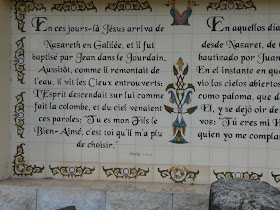 En ces jours-là Jésus arriva de
Nazareth en Galilée, et il fut
baptisé par Jean dans le Jourdain.
Aussitôt, comme il remontait de
l'eau, il vit les Cieux entrouverts;
l'Esprit descendait sur lui comme
fait la colombe, et du ciel venaient
ces paroles; Tu es mon Fils le
Bien-Aimé, c'est toi qu'il m'a plu
de choisir.
En aquellos día
desde Nazaret, de G
bautizado por Juan
En el instante en que
vió los cielos abiertos
como paloma, que d
El, y se dejó oir de
voz: "Tú eres mi H
quien yo me compla